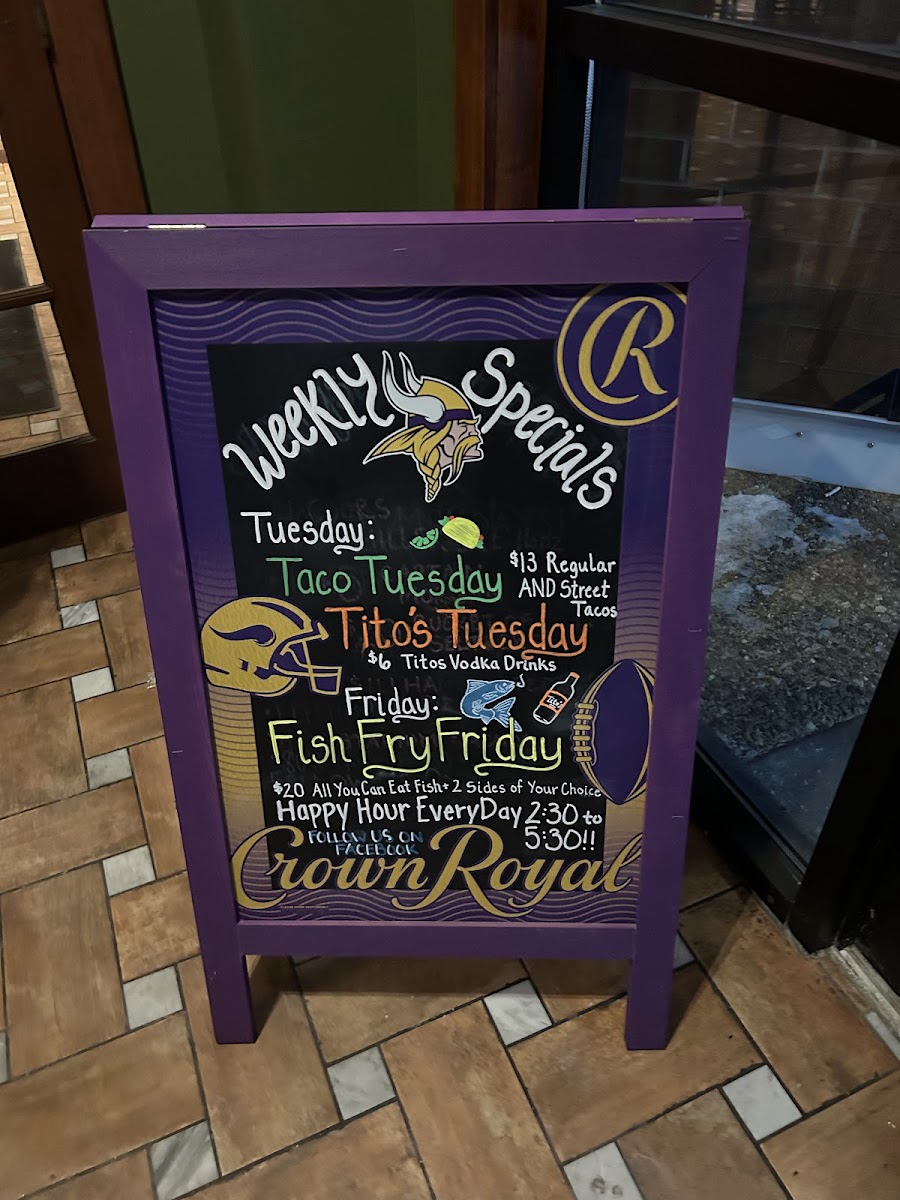 CR
Weekly Specials
Tuesday:
Taco Tuesday
$13 Regular
AND Street
Tacos
Tito's Tuesday
$6 Titos Vodka Drinks
Friday:
Fish Fry Friday
$20 All You Can Eat Fish + 2 Sides of Your Choice
Happy Hour EveryDay 2:30 to
5:30!!
FOLLOW US ON
FACEBOOK
Crown Royal